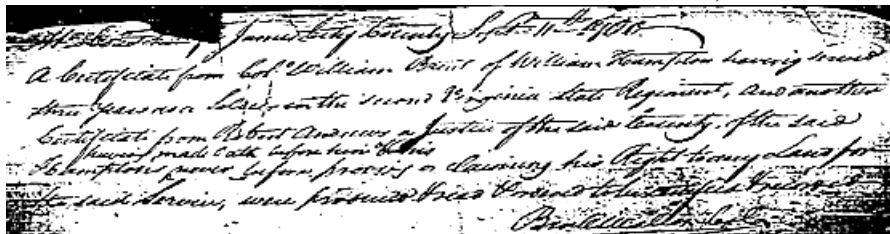 At a Court James City County Sept. 11th
A Certificate from Colo. William Brent of William Hampton having served
three years as a Soldier in the second Virginia State Regiment, and another
Certificate from Robert Andrews a Justice of the said County, of the said
having made Oath before him of his
Hamptons never before proving or claiming his Right to any Land for
the said Service, were produced & read & ordered to be certified